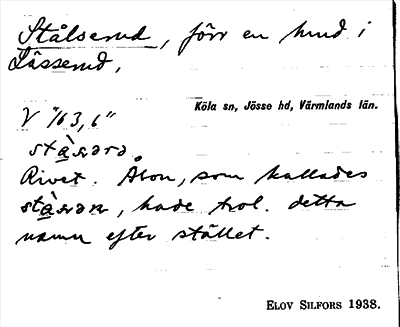 Stålserud, förr en hmd i
Lässerud.
Köla sn, Jösse hd, Värmlands län.
V 11/63, 6"
Rivet. Åbon, som kallades
hade trol. detta
namn efter stället.
ELOV SILFORS 1938.